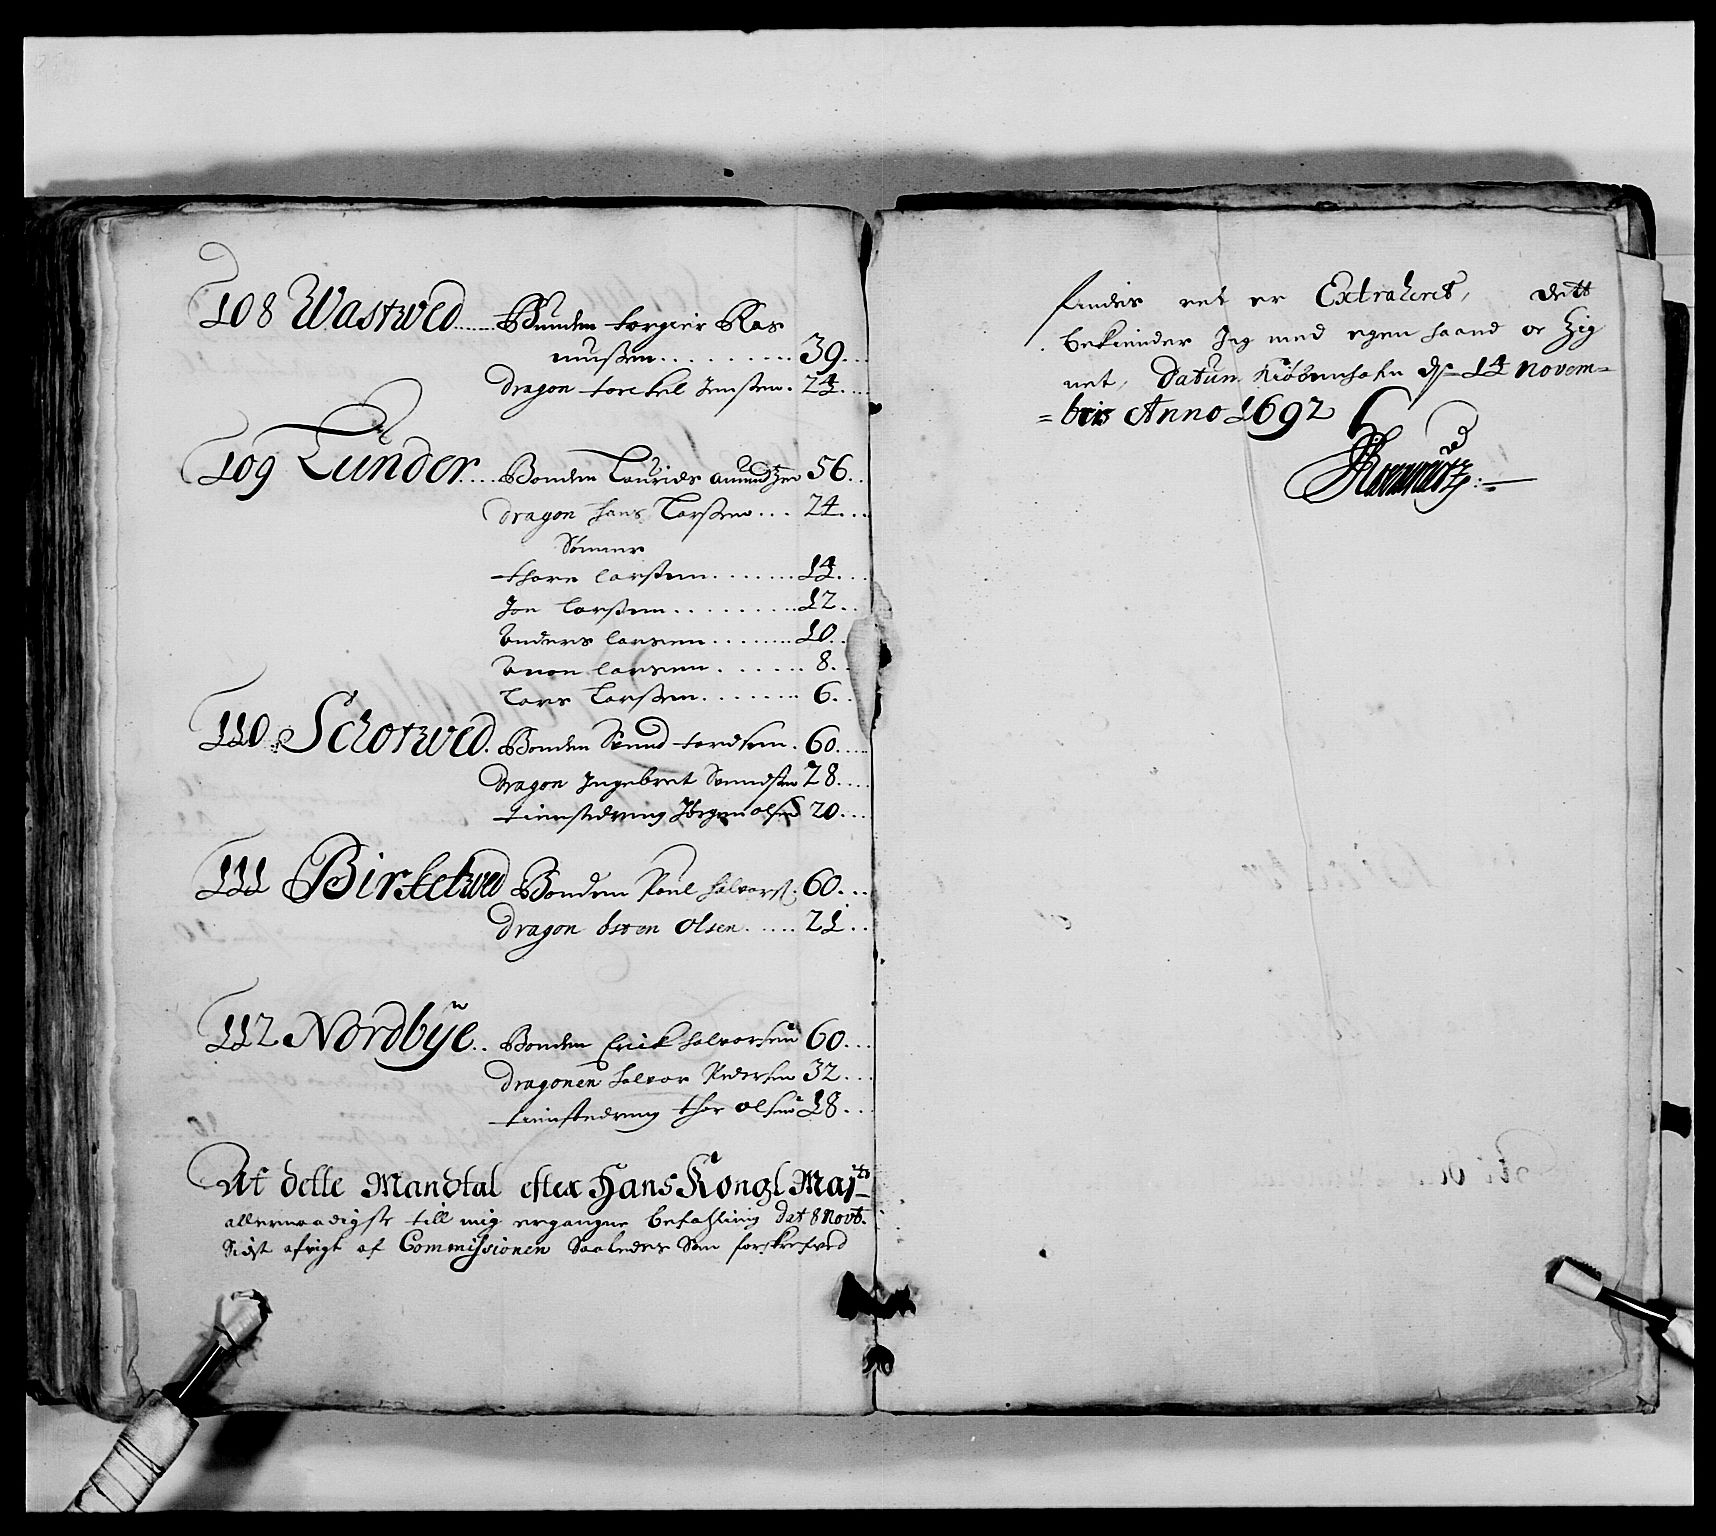 108 Wastwed ...... Bunden torgier Ras
mußen .......... 39...
Dragon torckel Jenßen. 24...
109 Lunder .... Bonden Laurids amundtzen 56..
Dragon hans Larßen ... 24...
Sønner
thore larßen ........ 14...
Jon Larßen .......... 12..
Anders larsen ........ 10..
larsen ....... 8..
Lars Larßen ........ 6..
110. Schotwed. Bonden Svend tordsen. 60....
Dragon Ingebret Svendsen 28....
tienstedreng Jørgen olsen 20....
111 Birketwed Bonden Poul halvors. 60...
Dragon osten Olsen ...... 21..
112 Nordbÿe .. Bonden Erick halvorsen 60...
Dragonen halvor Pedersen 32...
tienstedreng thor olsen 18...
At dette Mandtal efter Hans Kongl Majts
allernaadigste till mig ergangne befahling Dat 8 Novb.
Sidst afvigt af Commissionen Saaledes Som forskrefved
findes ret er Extraheret, dett
bekiender Jeg med egen haand oc Zig
net, Datum Kiøbenhafn d. 14 Novem=
=bris Anno 1692